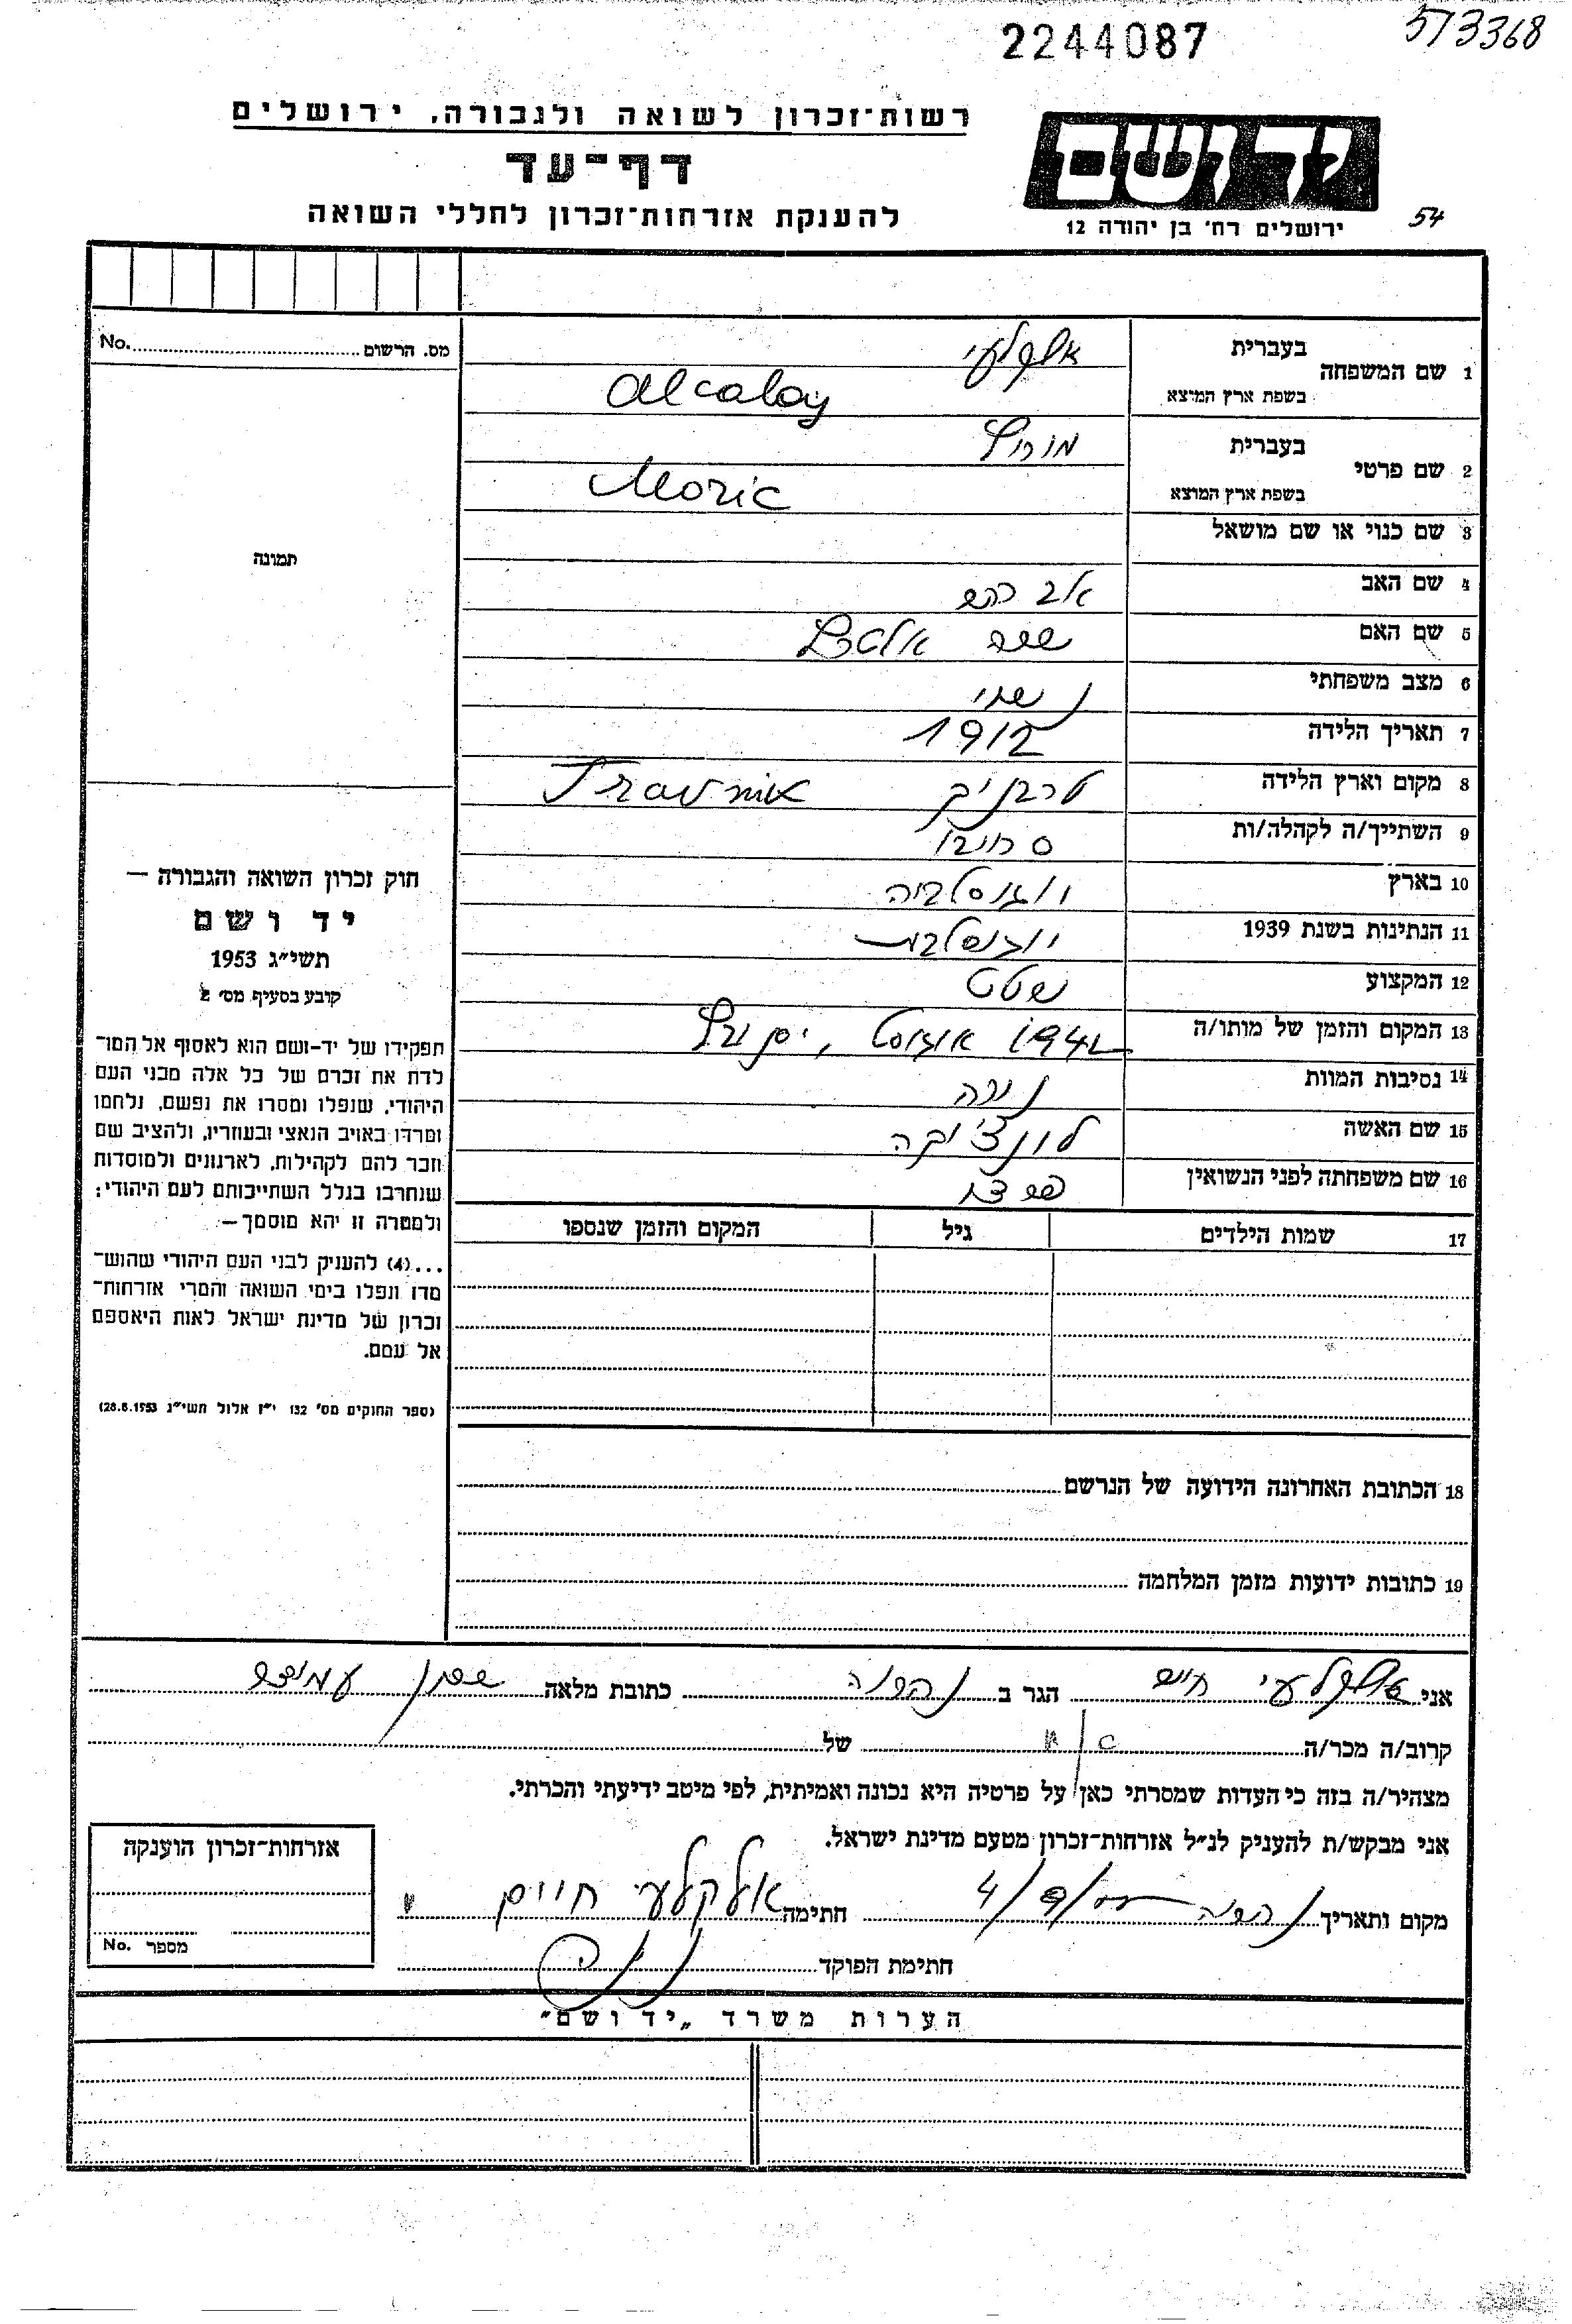 2244087
573368
רשות־זכרון לשואה ולגבורה, ירושלים
דף־עד
להענקת אזרחות־זכרון לחללי השואה
ידושם
ירושלים רח׳ בן יהודה 12
54
מס. הרשום No.
תמונה
1 שם המשפחה
בעברית אלקלעי
בשפת ארץ המוצא Alcalay
2 שם פרטי
בעברית מוריץ
בשפת ארץ המוצא Moric
3 שם כנוי או שם מושאל
4 שם האב אברהם
5 שם האם
6 מצב משפחתי נשוי
7 תאריך הלידה 1912
8 מקום וארץ הלידה טרבניק Travnik
9 השתייך/ה לקהלה/ות
10 בארץ יוגוסלביה
11 הנתינות בשנת 1939 יוגוסלבית
12 המקצוע
13 המקום והזמן של מותו/ה 1942 אוגוסט,
14 נסיבות המוות
15 שם האשה
16 שם משפחתה לפני הנשואין
17 שמות הילדים גיל המקום והזמן שנספו
18 הכתובת האחרונה הידועה של הנרשם
19 כתובות ידועות מזמן המלחמה
חוק זכרון השואה והגבורה —
יד ושם
תשי״ג 1953
קובע בסעיף מס׳ 2
תפקידו של יד־ושם הוא לאסוף אל המו־
לדת את זכרם של כל אלה מבני העם
היהודי, שנפלו ומסרו את נפשם, נלחמו
ומרדו באויב הנאצי ובעוזריו, ולהציב שם
וזכר להם לקהילות, לארגונים ולמוסדות
שנחרבו בגלל השתייכותם לעם היהודי;
ולמטרה זו יהא מוסמך —
...(4) להעניק לבני העם היהודי שהוש־
מדו ונפלו בימי השואה והמרי אזרחות־
זכרון של מדינת ישראל לאות היאספם
אל עמם.
(ספר החוקים מס׳ 132 י״ז אלול תשי״ג 28.8.1953)
אני אלקלעי חיים הגר ב נהריה כתובת מלאה שכון עמידר
קרוב/ה מכר/ה אח של
מצהיר/ה בזה כי העדות שמסרתי כאן על פרטיה היא נכונה ואמיתית, לפי מיטב ידיעתי והכרתי.
אני מבקש/ת להעניק לנ״ל אזרחות־זכרון מטעם מדינת ישראל.
מקום ותאריך נהריה 4/9/55 חתימה אלקלעי חיים
חתימת הפוקד
אזרחות־זכרון הוענקה
מספר No.
הערות משרד „יד ושם"